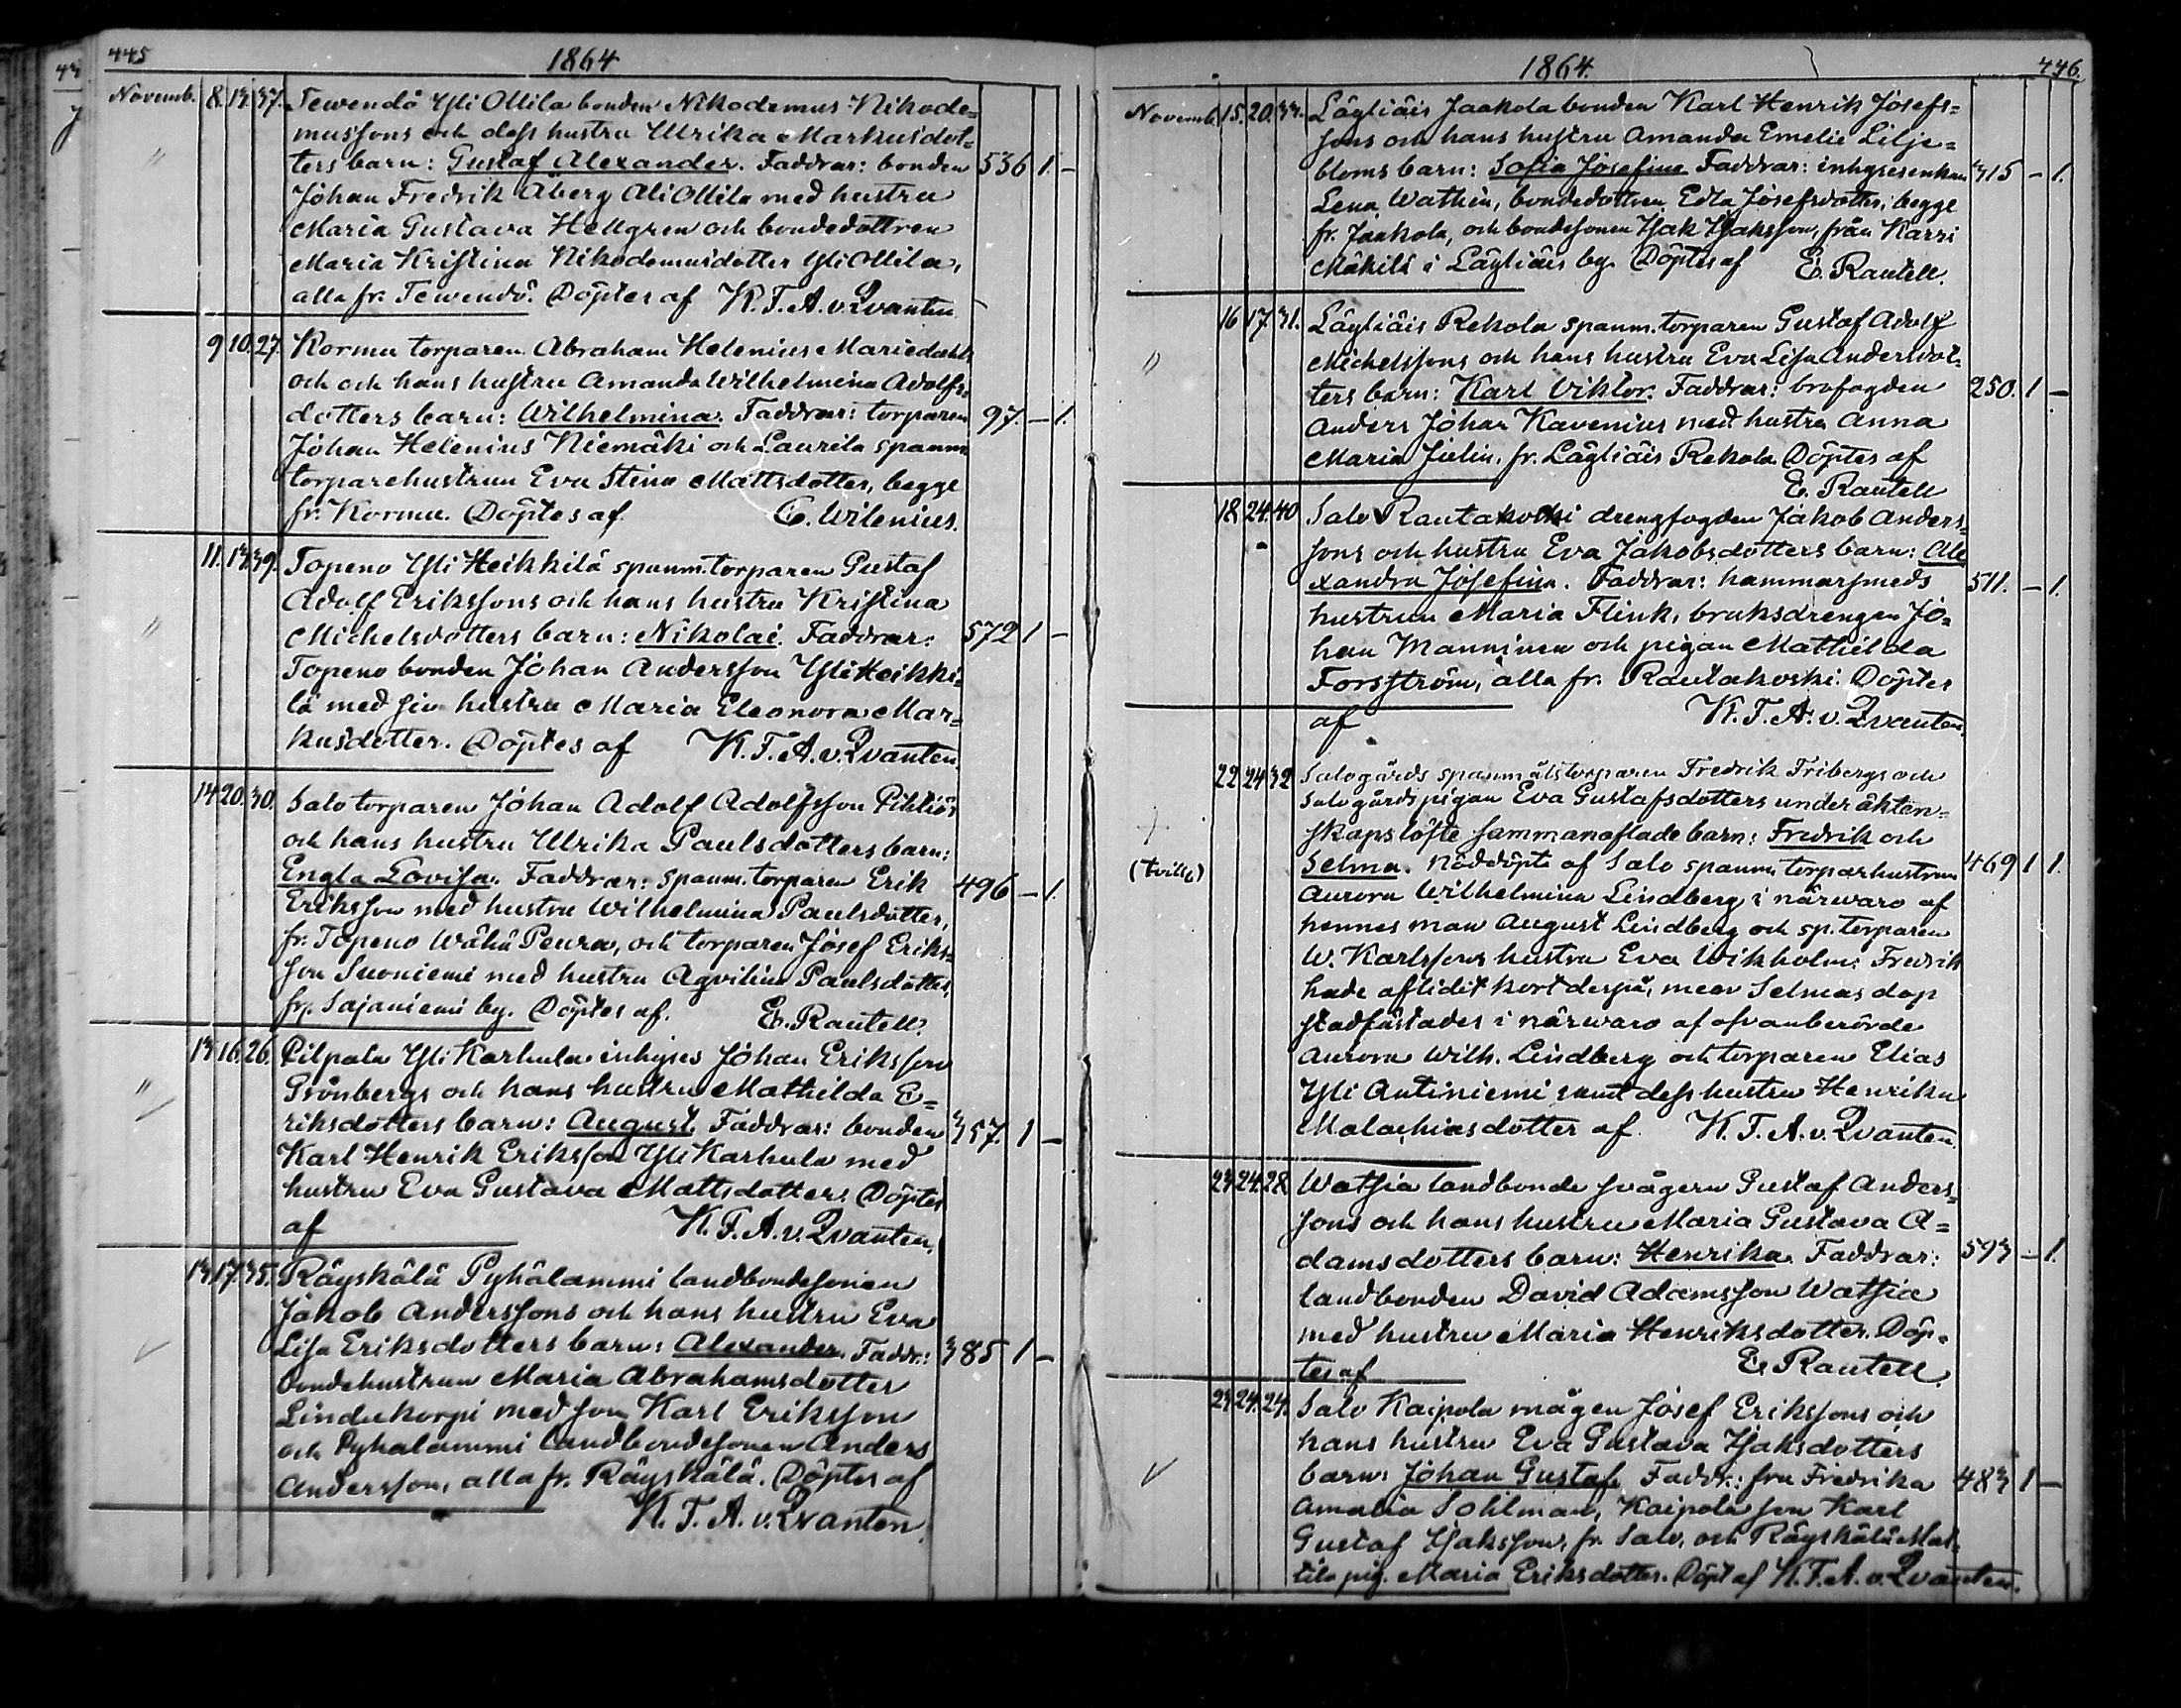 445
1864
Novemb. 8. 13. 37. Tewendö Yli Ollila bonden Nikodemus Nikode=
mussons och dess hustru Ulrika Markusdot=
ters barn: Gustaf Alexander. Faddrar: bonden 536 1. —
Johan Fredrik Åberg Ali Ollila med hustru
Maria Gustava Hellgren och bondedottren
Maria Kristina Nikodemusdotter Yli Ollila,
alla fr. Tewendö. Döptes af K. F. A. v. Qvanten
9 10. 27. Kormu torparen Abraham Helenius Mariedahl
och och hans hustru Amanda Wilhelmina Adolfs=
dotters barn: Wilhelmina. Faddrar: torparen 97. — 1.
Johan Helenius Niemäki och Laurila spanm.
torparehustrun Eva Stina Mattsdotter, begge
fr. Kormu. Döptes af C. Wilenius.
11. 13. 39. Topeno Yli Heikkilä spanm. torparen Gustaf
Adolf Erikssons och hans hustru Kristina
Michelsdotters barn: Nikolai. Faddrar: 572 1 —
Topeno bonden Johan Andersson Yli Heikki=
lä med sin hustru Maria Eleonora Mar=
kusdotter. Döptes af K. F. A. v. Qvanten.
14 20. 30. Salo torparen Johan Adolf Adolfsson Pihliö
och hans hustru Ulrika Paulsdotters barn:
Engla Lovisa. Faddrar: spanm. torparen Erik 496 — 1.
Eriksson med hustru Wilhelmina Paulsdotter,
fr. Topeno Wähä Peura, och torparen Josef Eriks=
son Suoniemi med hustru Agvilina Paulsdotter,
fr. Sajaniemi by. Döptes af. E. Rautell.
13 16. 26. Pilpala Yli Karhula inhyses Johan Eriksson
Grönbergs och hans hustru Mathilda E=
riksdotters barn: August. Faddrar: bonden 357. 1 —
Karl Henrik Eriksson Yli Karhula med
hustru Eva Gustava Mattsdotter. Döptes
af K. F. A. v. Qvanten.
13 17. 35. Räyskälä Pyhälammi landbondesonen
Jakob Anderssons och hans hustru Eva
Lisa Eriksdotters barn: Alexander. Faddr.: 385 1 —
bondehustrun Maria Abrahamsdotter
Lindukorpi med son Karl Eriksson
och Pyhalammi landbondesonen Anders
Andersson, alla fr. Räyskälä. Döptes af
K. F. A. v. Qvanten.
1864.
446.
Novemb. 15. 20. 33. Lägliäis Jaakola bonden Karl Henrik Josefs=
sons och hans hustru Amanda Emelie Lilje=
bloms barn: Sofia Josefina. Faddrar: inhysesenkan 315 — 1.
Lena Wathén, bondedottren Edla Josefsdotter, begge
fr. Jaakola, och bondesonen Isak Isaksson, från Karri
Mäkilä i Lägliäis by. Döptes af E. Rautell.
16 17. 31. Lägliäis Rekola spanm. torparen Gustaf Adolf
Michelssons och hans hustru Eva Lisa Andersdot=
ters barn: Karl Viktor. Faddrar: brofogden 250. 1 —
Anders Johan Kavenius med hustru Anna
Maria Julin, fr. Lägliäis Rekola. Döptes af
E. Rautell
18 24. 40 Salo Rautakoski drengfogden Jakob Anders=
sons och hustru Eva Jakobsdotters barn: Ale
xandra Josefina. Faddrar: hammarsmeds 511. — 1.
hustrun Maria Flink, bruksdrengen Jo=
han Manninen och pigan Mathilda
Forsström, alla fr. Rautakoski. Döptes
af K. F. A. v. Qvanten.
22 24 32 Salogårds spanmålstorparen Fredrik Fribergs och
Salogårdspigan Eva Gustafsdotters under äkten=
skapslöfte sammanaflade barn: Fredrik och
(tvill.) Selma. Nöddöpte af Salo spanm. torparhustrun 469 1 1.
Aurora Wilhelmina Lindberg i närwaro af
hennes man August Lindberg och sp. torparen
W. Karlssons hustru Eva Wikholm. Fredrik
hade aflidit kort derpå, men Selmas dop
stadfästades i närwaro af ofvanberörde
Aurora Wilh. Lindberg och torparen Elias
Yli Antiniemi samt dess hustru Henrika
Malachiasdotter af K. F. A. v. Qvanten.
23 24. 28 Watsia landbonde svågern Gustaf Anders=
sons och hans hustru Maria Gustava A=
damsdotters barn: Henrika. Faddrar: 593 — 1.
landbonden David Adamsson Watsia
med hustru Maria Henriksdotter. Döp=
tes af E. Rautell.
23 24. 24. Salo Kaipola mågen Josef Erikssons och
hans hustru Eva Gustava Isaksdotters
barn: Johan Gustaf. Faddr.: fru Fredrika 483 1 —
Amalia Sohlman, Kaipola son Karl
Gustaf Isaksson, fr. Salo, och Räyskälä Mat=
tila pig. Maria Eriksdotter. Döpt af K. F. A. v. Qvanten.